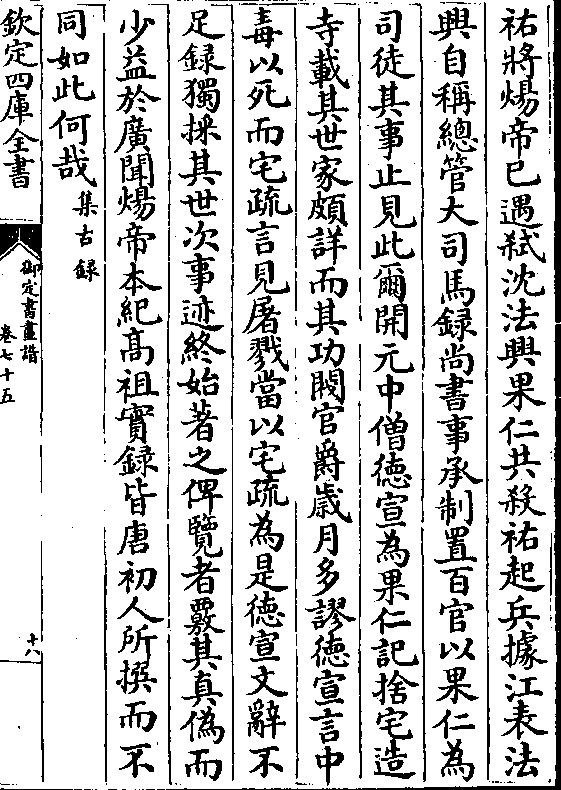 祐將煬帝已遇弑沈法興果仁共殺祐起兵據江表法
興自稱總管大司馬録尚書事承制置百官以果仁為
司徒其事止見此爾開元中僧徳宣為果仁記捨宅造
寺載其世家頗詳而其功閥官爵嵗月多謬徳宣言中
毒以死而宅疏言見屠戮當以宅疏為是徳宣文辭不
足録獨採其世次事迹終始著之俾覽者覈其真偽而
少益於廣聞煬帝本紀髙祖實録皆唐初人所撰而不
同如此何哉集古録
欽定四庫全書
御定書畫譜
卷七十五
十八